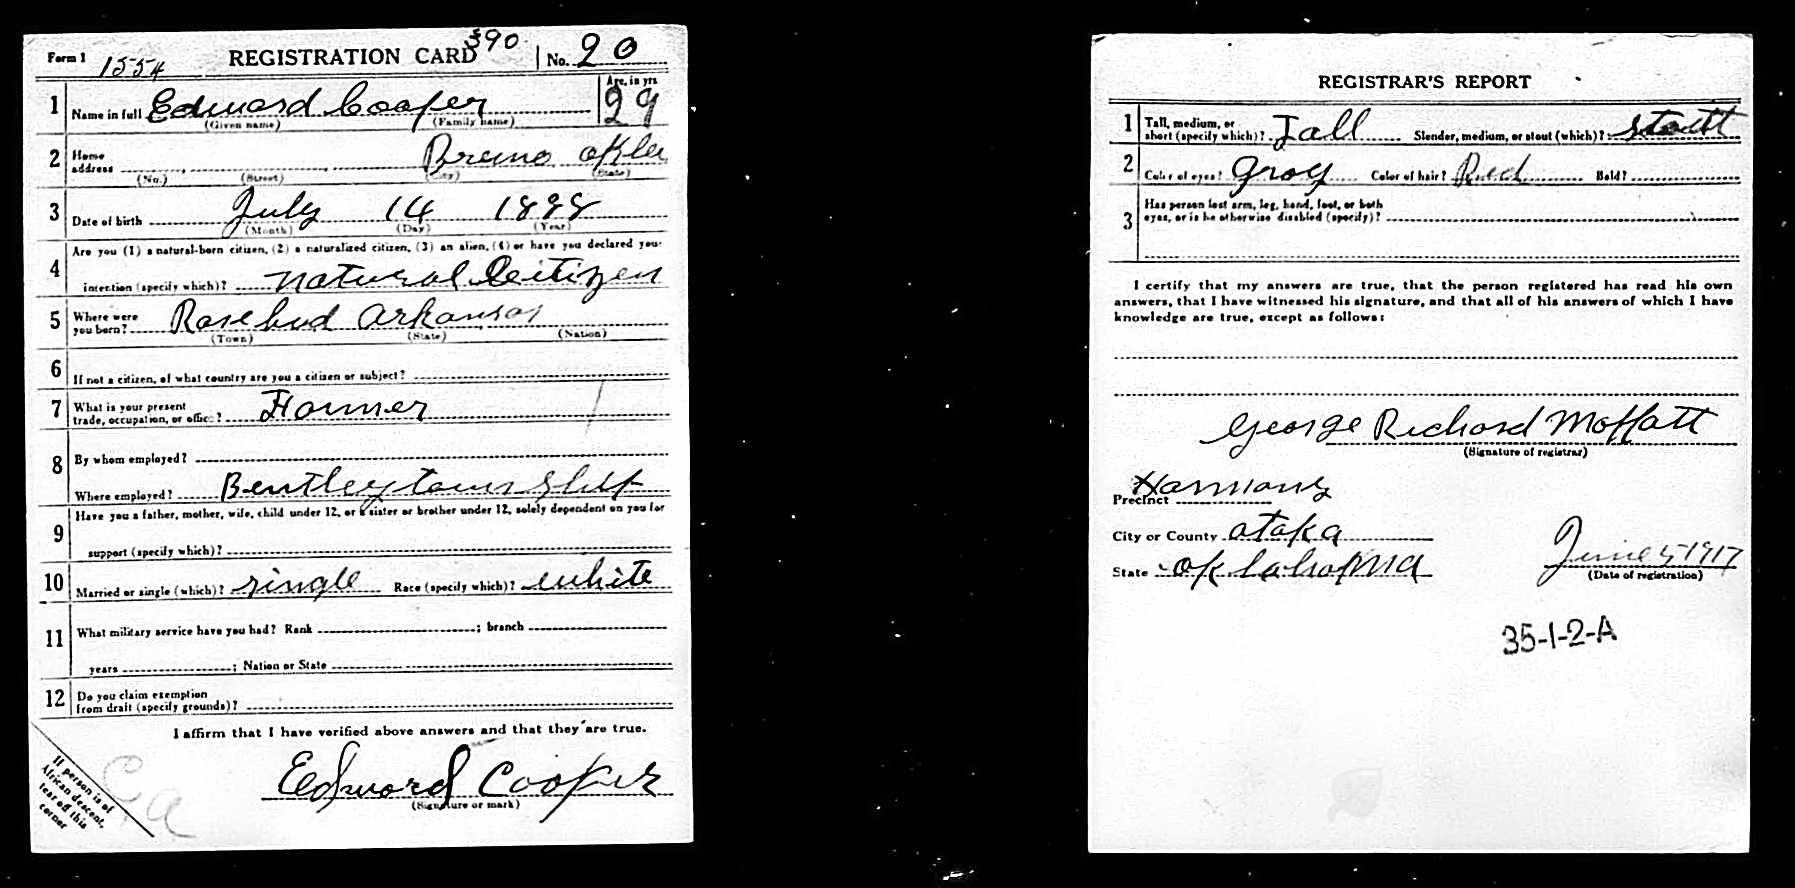 390
Form 1 1554 REGISTRATION CARD No. 20
1 Name in full Edward Cooper Age, in yrs 29
(Given name) (Family name)
2 Home address Bruno Okla
(No.) (Street) (City) (State)
3 Date of birth July 14 1888
(Month) (Day) (Year)
4 Are you (1) a natural-born citizen, (2) a naturalized citizen, (3) an alien, (4) or have you declared your
intention (specify which)? natural Citizen
5 Where were you born? Rosebud Arkansas
(Town) (State) (Nation)
6 If not a citizen, of what country are you a citizen or subject?
7 What is your present trade, occupation, or office? Farmer
8 By whom employed?
Where employed? Bentley township
9 Have you a father, mother, wife, child under 12, or a sister or brother under 12, solely dependent on you for
support (specify which)?
10 Married or single (which)? single Race (specify which)? white
11 What military service have you had? Rank ; branch
years ; Nation or State
12 Do you claim exemption from draft (specify grounds)?
I affirm that I have verified above answers and that they are true.
Edward Cooper
(Signature or mark)
If person is of
African descent,
tear off this
corner
REGISTRAR'S REPORT
1 Tall, medium, or short (specify which)? Tall Slender, medium, or stout (which)? Stoutt
2 Color of eyes? Gray Color of hair? Red Bald?
3 Has person lost arm, leg, hand, foot, or both
eyes, or is he otherwise disabled (specify)?
I certify that my answers are true, that the person registered has read his own
answers, that I have witnessed his signature, and that all of his answers of which I have
knowledge are true, except as follows:
George Richard Moffatt
(Signature of registrar)
Precinct Harmony
City or County Atoka
State Oklahoma June 5 1917
(Date of registration)
35-1-2-A